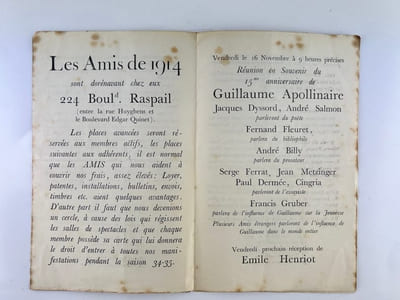 Les Amis de 1914
sont dorénavant chez eux
224 Boul<sup>d</sup>. Raspail
(entre la rue Huyghens et
le Boulevard Edgar Quinet).
Les places avancées seront ré-
servées aux membres actifs, les places
suivantes aux adhérents, il est normal
que les AMIS qui nous aident à
courir nos frais, assez élevés: Loyer,
patentes, installations, bulletins, envois,
timbres etc. aient quelques avantages.
D'autre part il faut que nous devenions
un cercle, à cause des lois qui régissent
les salles de spectacles et que chaque
membre possède sa carte qui lui donnera
le droit d'entrer à toutes nos mani-
festations pendant la saison 34-35.
Vendredi le 16 Novembre à 9 heures précises
Réunion en Souvenir du
15<sup>me</sup> anniversaire de
Guillaume Apollinaire
Jacques Dyssord, André Salmon
parleront du poète
Fernand Fleuret,
parlera du bibliophile
André Billy
parlera du prosateur
Serge Ferrat, Jean Metzinger
Paul Dermée, Cingria
parleront de l'exégète
Francis Gruber
parlera de l'influence de Guillaume sur la Jeunesse
Plusieurs Amis étrangers parleront de l'influence de
Guillaume dans le monde entier
Vendredi prochain réception de
Emile Henriot